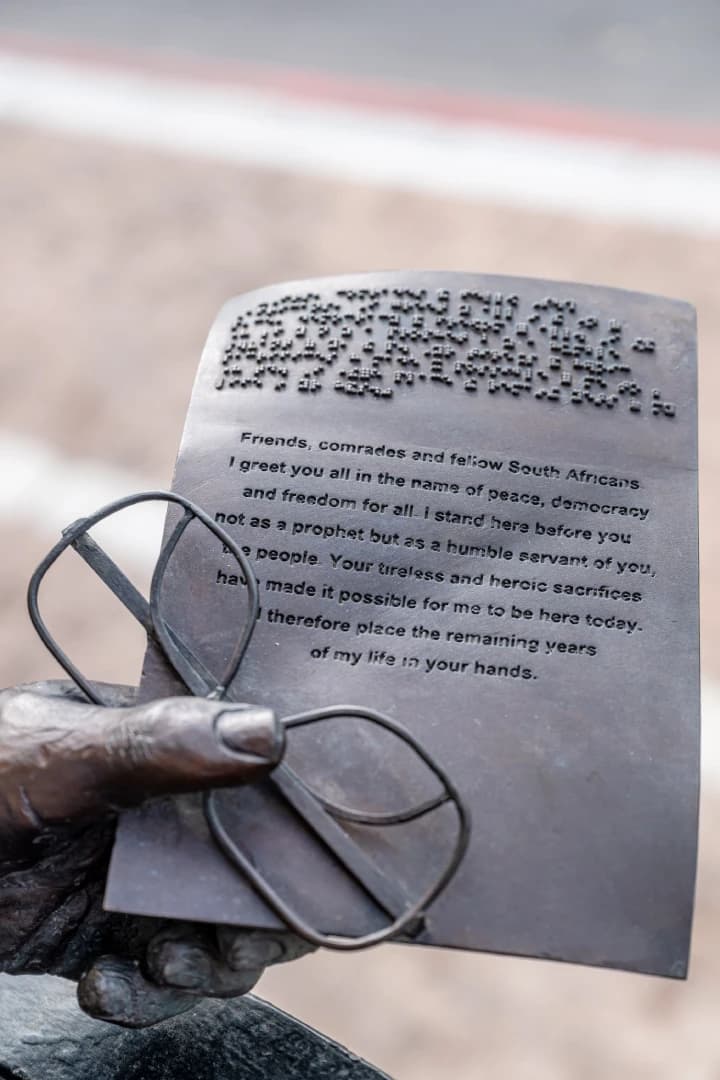 Friends, comrades and fellow South Africans
I greet you all in the name of peace, democracy
and freedom for all. I stand here before you
not as a prophet but as a humble servant of you,
the people. Your tireless and heroic sacrifices
have made it possible for me to be here today.
I therefore place the remaining years
of my life in your hands.